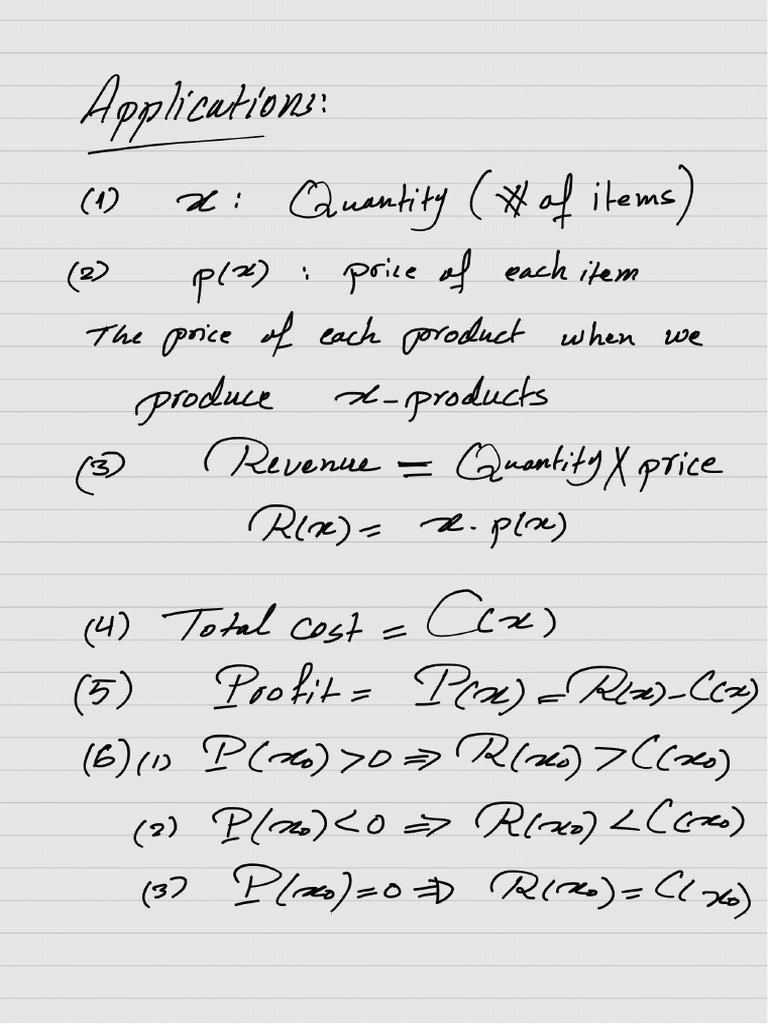 Applications:
(1) x : Quantity (# of items)
(2) p(x) : price of each item
The price of each product when we
produce x-products
(3) Revenue = Quantity X price
R(x) = x . p(x)
(4) Total cost = C(x)
(5) Profit = P(x) = R(x) - C(x)
(6) (1) P(x₀) > 0 ⇒ R(x₀) > C(x₀)
(2) P(x₀) < 0 ⇒ R(x₀) < C(x₀)
(3) P(x₀) = 0 ⇒ R(x₀) = C(x₀)